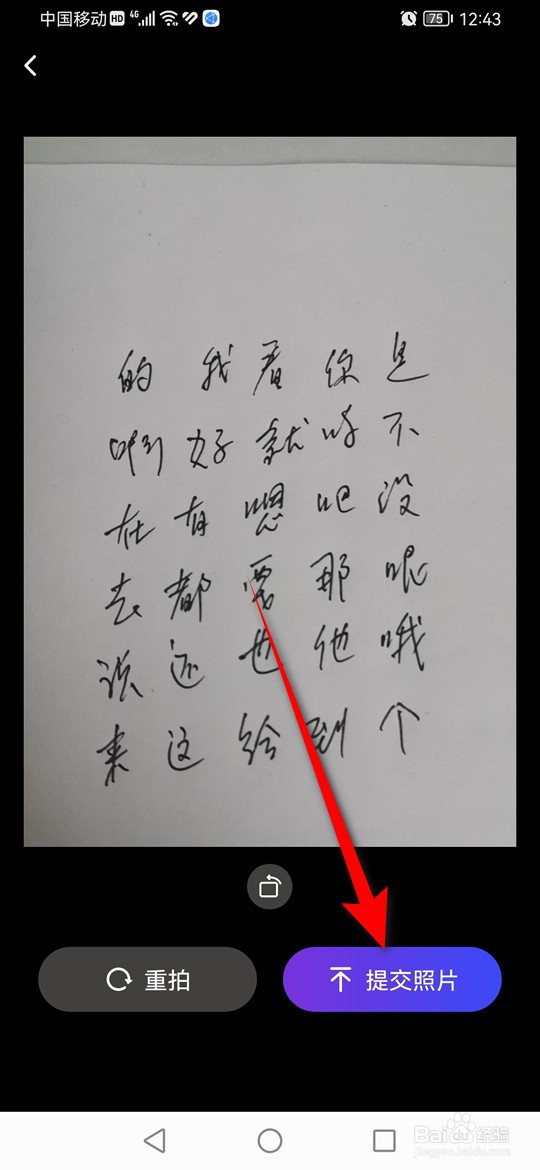 中国移动 HD 4G 75 12:43
的我看你是
啊好就时不
在有嗯吧没
去都要那呢
说还也他哦
来这给到个
重拍 提交照片
Baidu 经验
jingyan.baidu.com